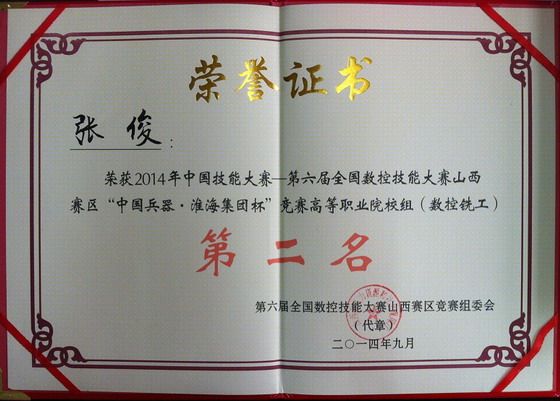 荣誉证书
张 俊：
荣获2014年中国技能大赛—第六届全国数控技能大赛山西
赛区“中国兵器·淮海集团杯”竞赛高等职业院校组（数控铣工）
第二名
第六届全国数控技能大赛山西赛区竞赛组委会
（代章）
二〇一四年九月